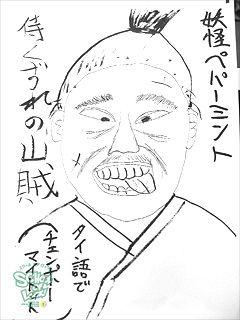 妖怪ペパーミント
侍くずれの山賊
タイ語で
(チェンポー
マイトット)